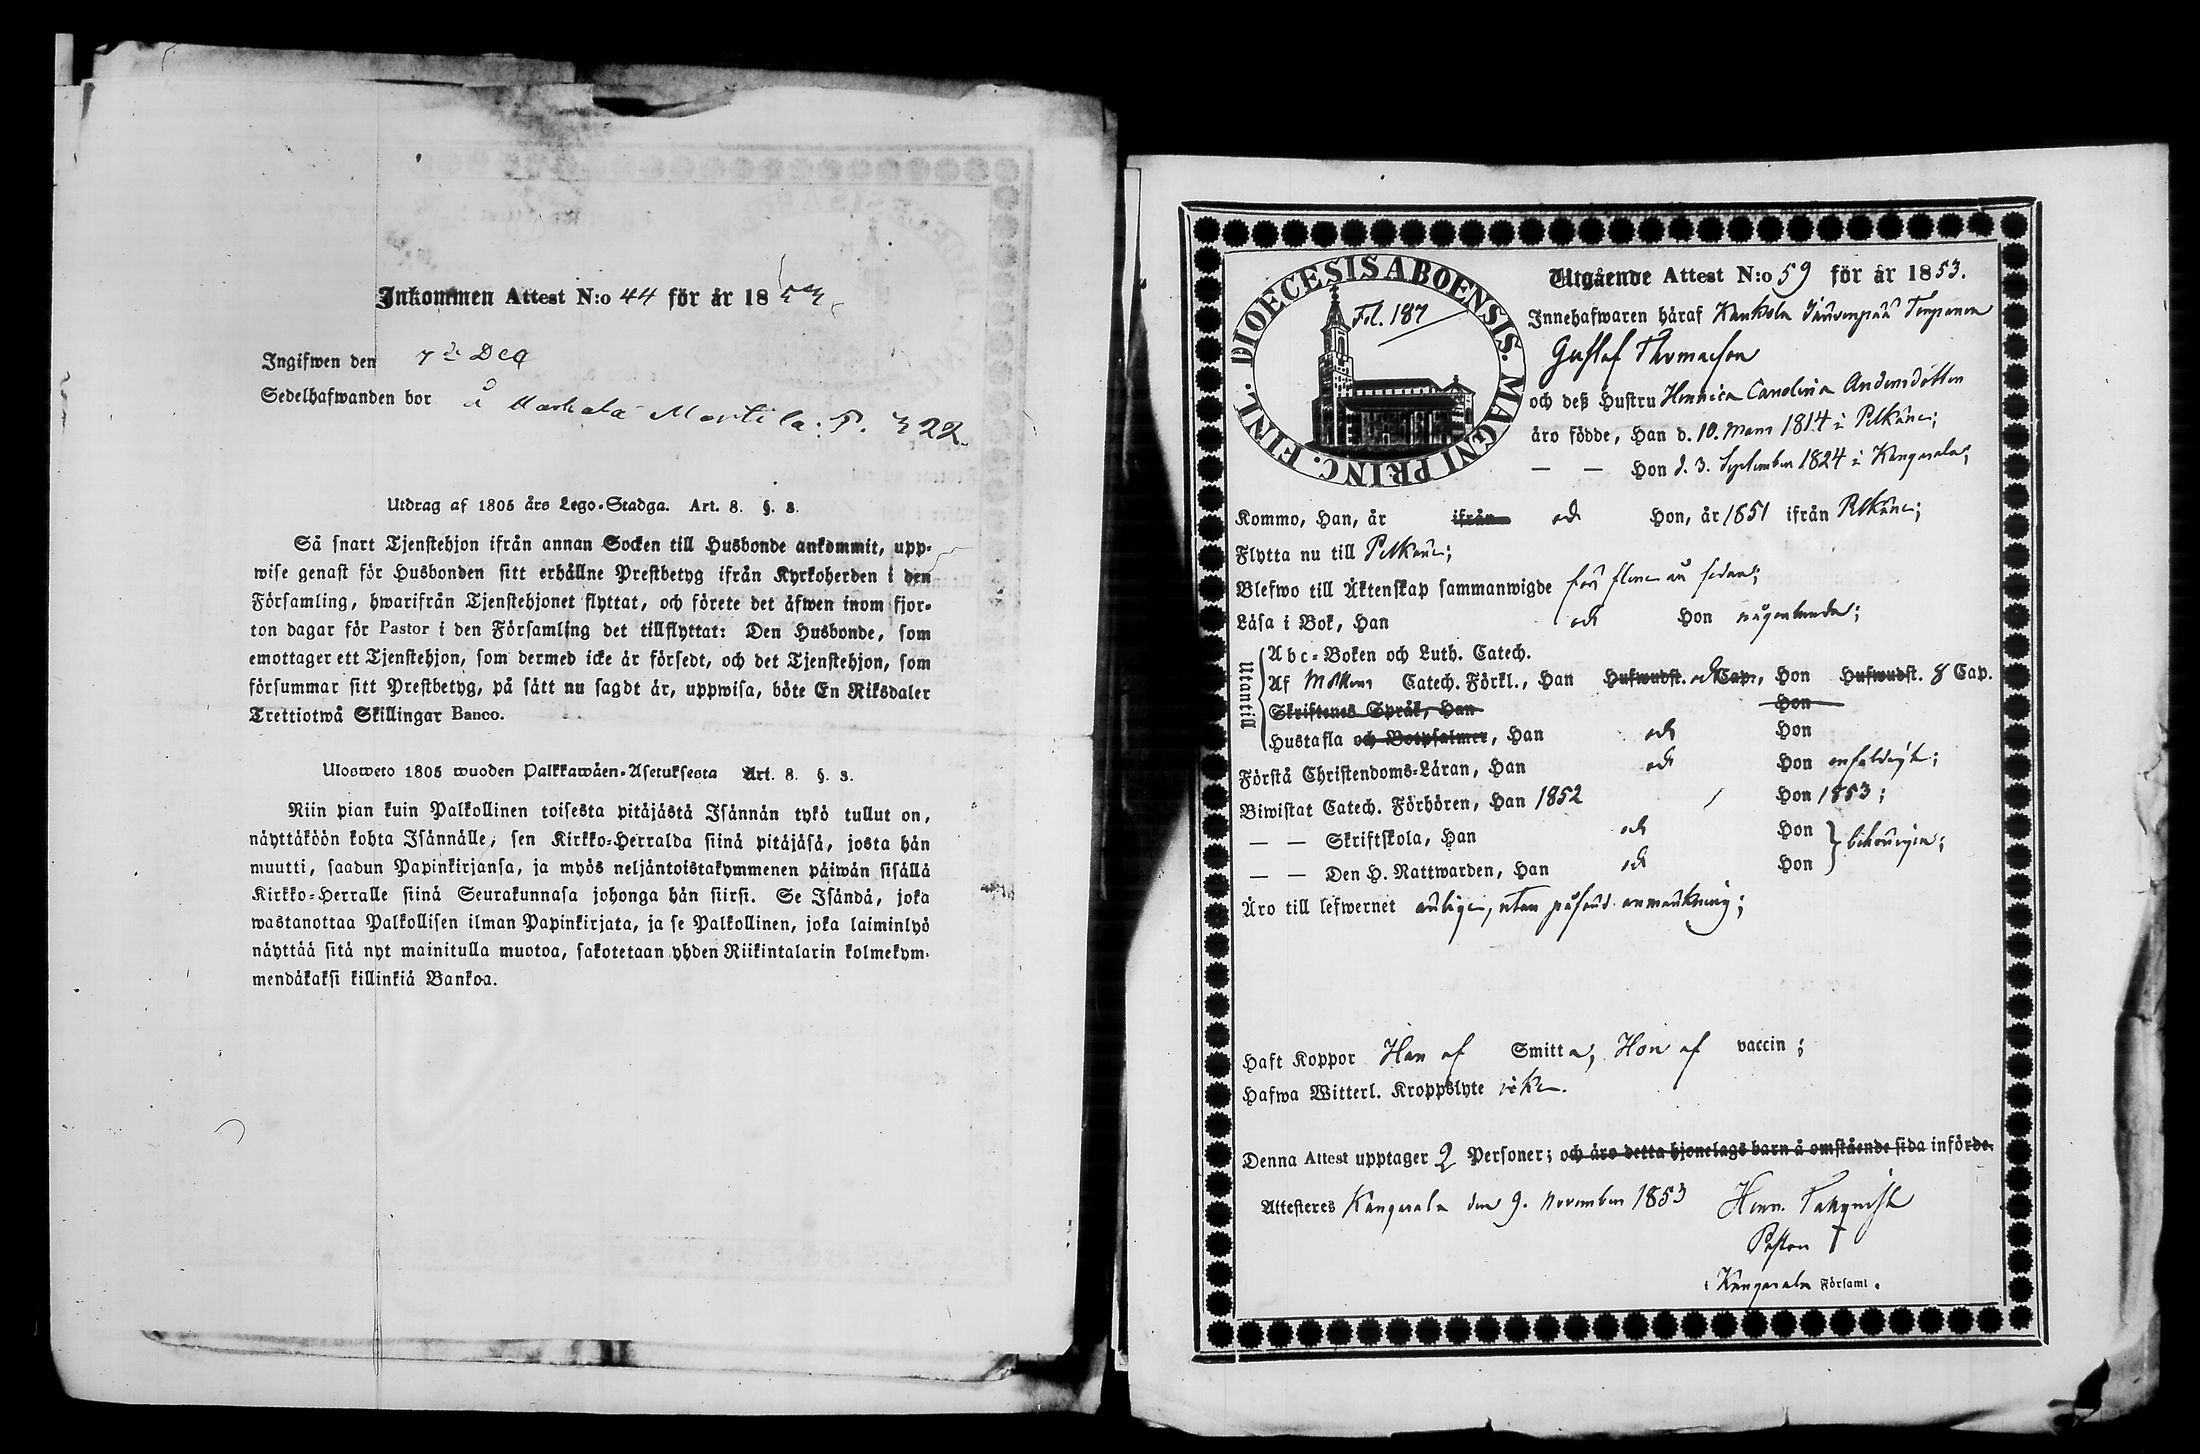 Inkommen Attest N:o 44 för år 18
Ingifwen den 7de Dec
Sedelhafwanden bor å Markala Martila. P. 322.
Utdrag af 1805 års Lego-Stadga. Art. 8. §. 3.
Så snart Tjenstehjon ifrån annan Socken till Husbonde ankommit, upp-
wise genast för Husbonden sitt erhållne Prestbetyg ifrån Kyrkoherden i den
Församling, hwarifrån Tjenstehjonet flyttat, och förete det äfwen inom fjor-
ton dagar för Pastor i den Församling det tillflyttat: Den Husbonde, som
emottager ett Tjenstehjon, som dermed icke är försedt, och det Tjenstehjon, som
försummar sitt Prestbetyg, på sätt nu sagdt är, uppwisa, böte En Riksdaler
Trettiotwå Skillingar Banco.
Ulosweto 1805 wuoden Palkkawäen-Asetuksesta Art. 8. §. 3.
Niin pian kuin Palkollinen toisesta pitäjästä Isännän tykö tullut on,
näyttäköön kohta Isännälle, sen Kirkko-Herralda siinä pitäjäsä, josta hän
muutti, saadun Papinkirjansa, ja myös neljäntoistakymmenen päiwän sisällä
Kirkko-Herralle siinä Seurakunnasa johonga hän siirsi. Se Isändä, joka
wastanottaa Palkollisen ilman Papinkirjata, ja se Palkollinen, joka laiminlyö
näyttää sitä nyt mainitulla muotoa, sakotetaan yhden Riikintalarin kolmekym-
mendäkaksi killinkiä Bankoa.
DIOECESIS ABOENSIS. MAGNI PRINC. FINL.
Fol. 187
Utgående Attest N:o 59 för år 1853.
Innehafwaren häraf Kaukola Jäwenpää
Gustaf Thomasson
och deß Hustru Henrica Carolina Andersdotter
äro födde, Han d. 10. Mars 1814 i Pelkäne;
— — Hon d. 3. September 1824 i Kangasala;
Kommo, Han, år ifrån och Hon, år 1851 ifrån Pelkäne;
Flytta nu till Pelkäne;
Blefwo till Äktenskap sammanwigde för flere år sedan;
Läsa i Bok, Han och Hon någorlunda;
Utantill
Abc-Boken och Luth. Catech.
Af Möllers Catech. Förkl., Han Hufwudst. och Cap., Hon Hufwudst. 8 Cap.
Skriftenes Språk, Han Hon
Hustafla och Botpsalmer, Han och Hon
Förstå Christendoms-Läran, Han och Hon enfaldigt;
Biwistat Catech. Förhören, Han 1852 Hon 1853;
— — Skriftskola, Han och Hon
behörigen;
— — Den H. Nattwarden, Han och Hon
Äro till lefwernet ärlige, utan påförd anmärkning;
Haft Koppor Han af Smitta, Hon af vaccin;
Hafwa Witterl. Kroppslyte icke.
Denna Attest upptager 2 Personer; och äro detta hjonelags barn å omstående sida införde.
Attesteres Kangasala den 9. November 1853 Henr.
Pastor
i Kangasala Församl.